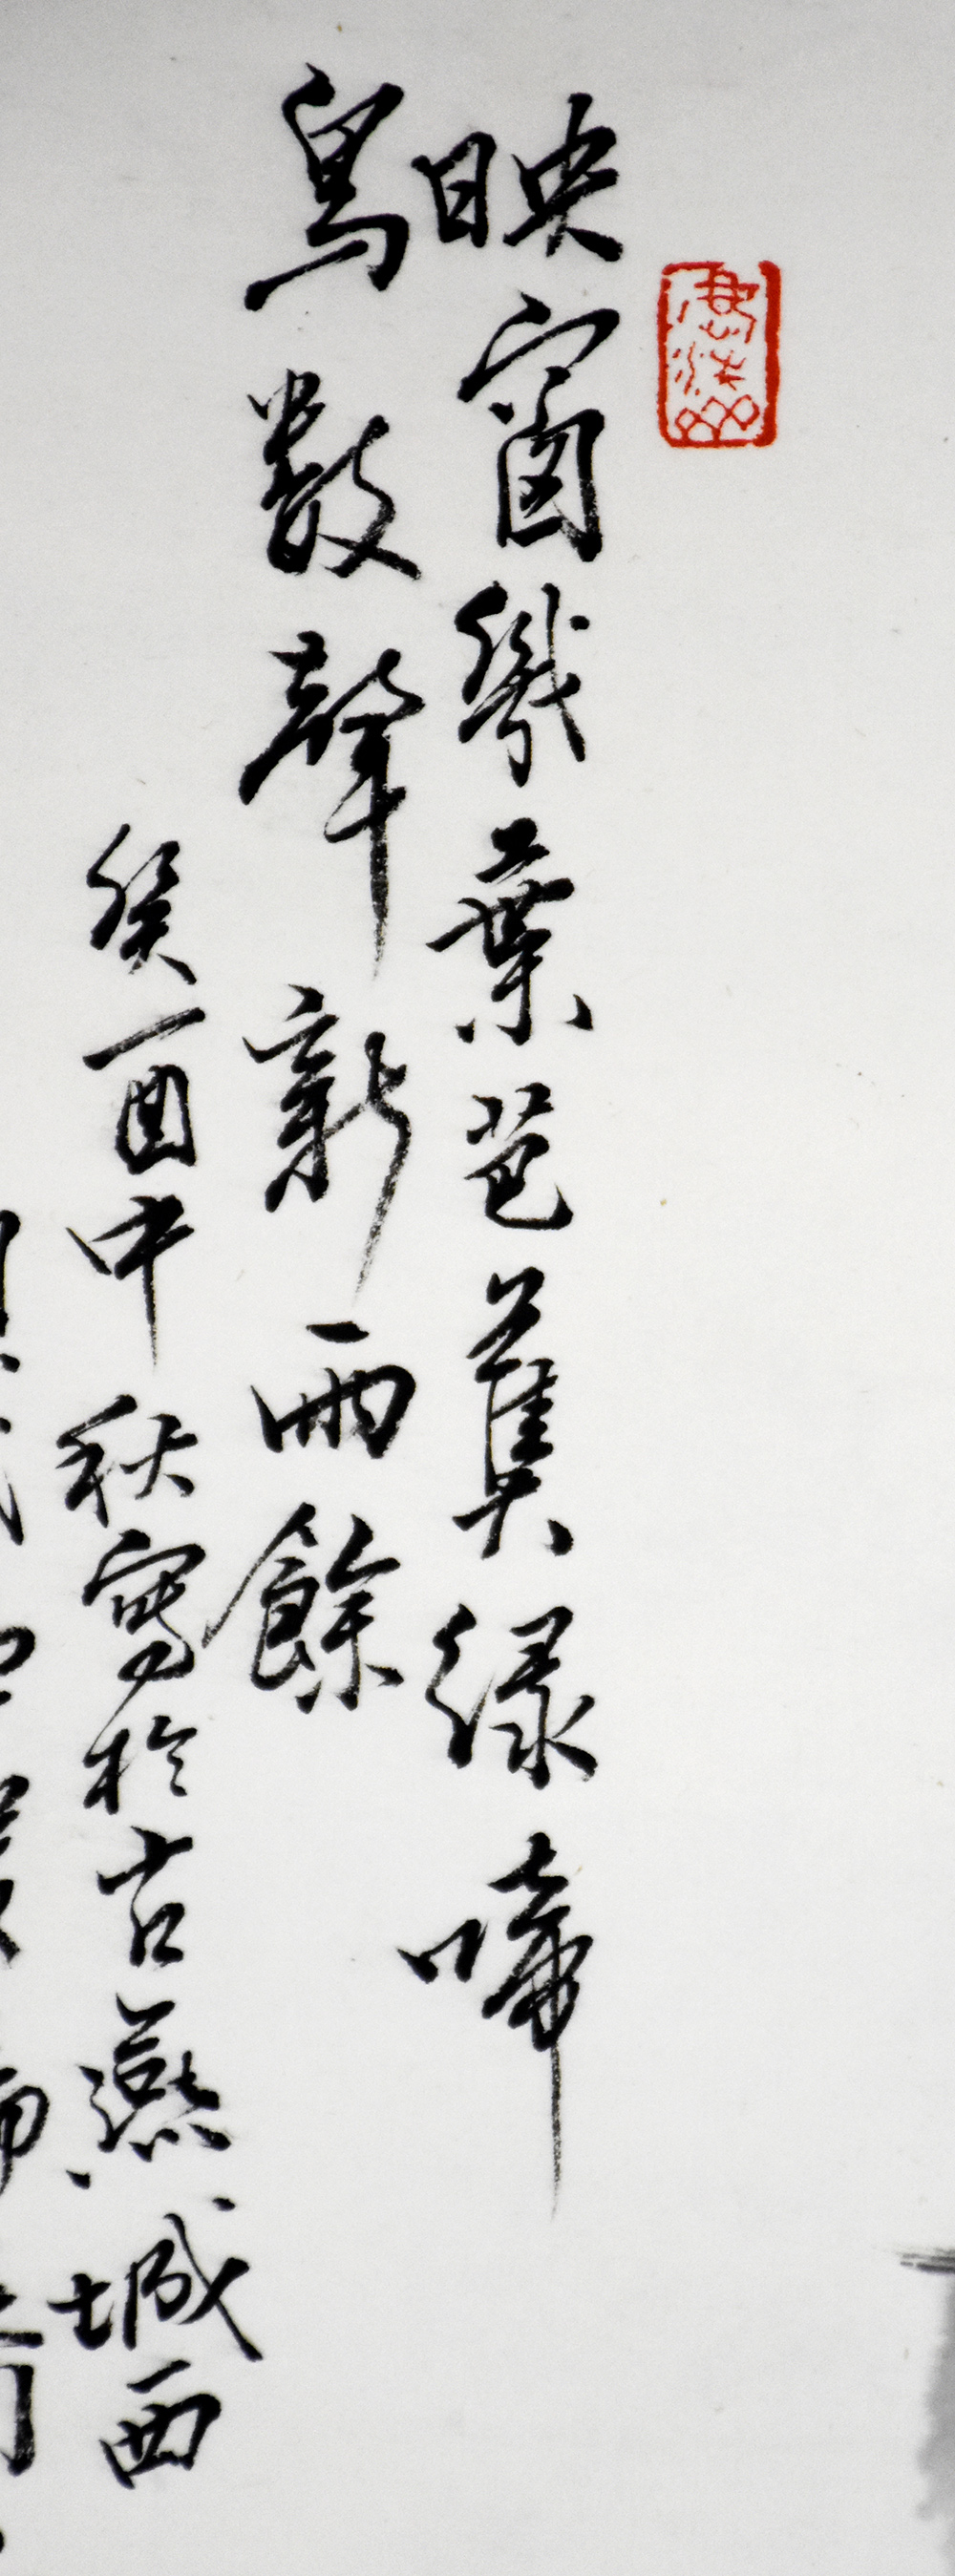 映窗幾葉芭蕉緑啼
鳥數聲新雨餘
癸酉中秋寫於古燕城西